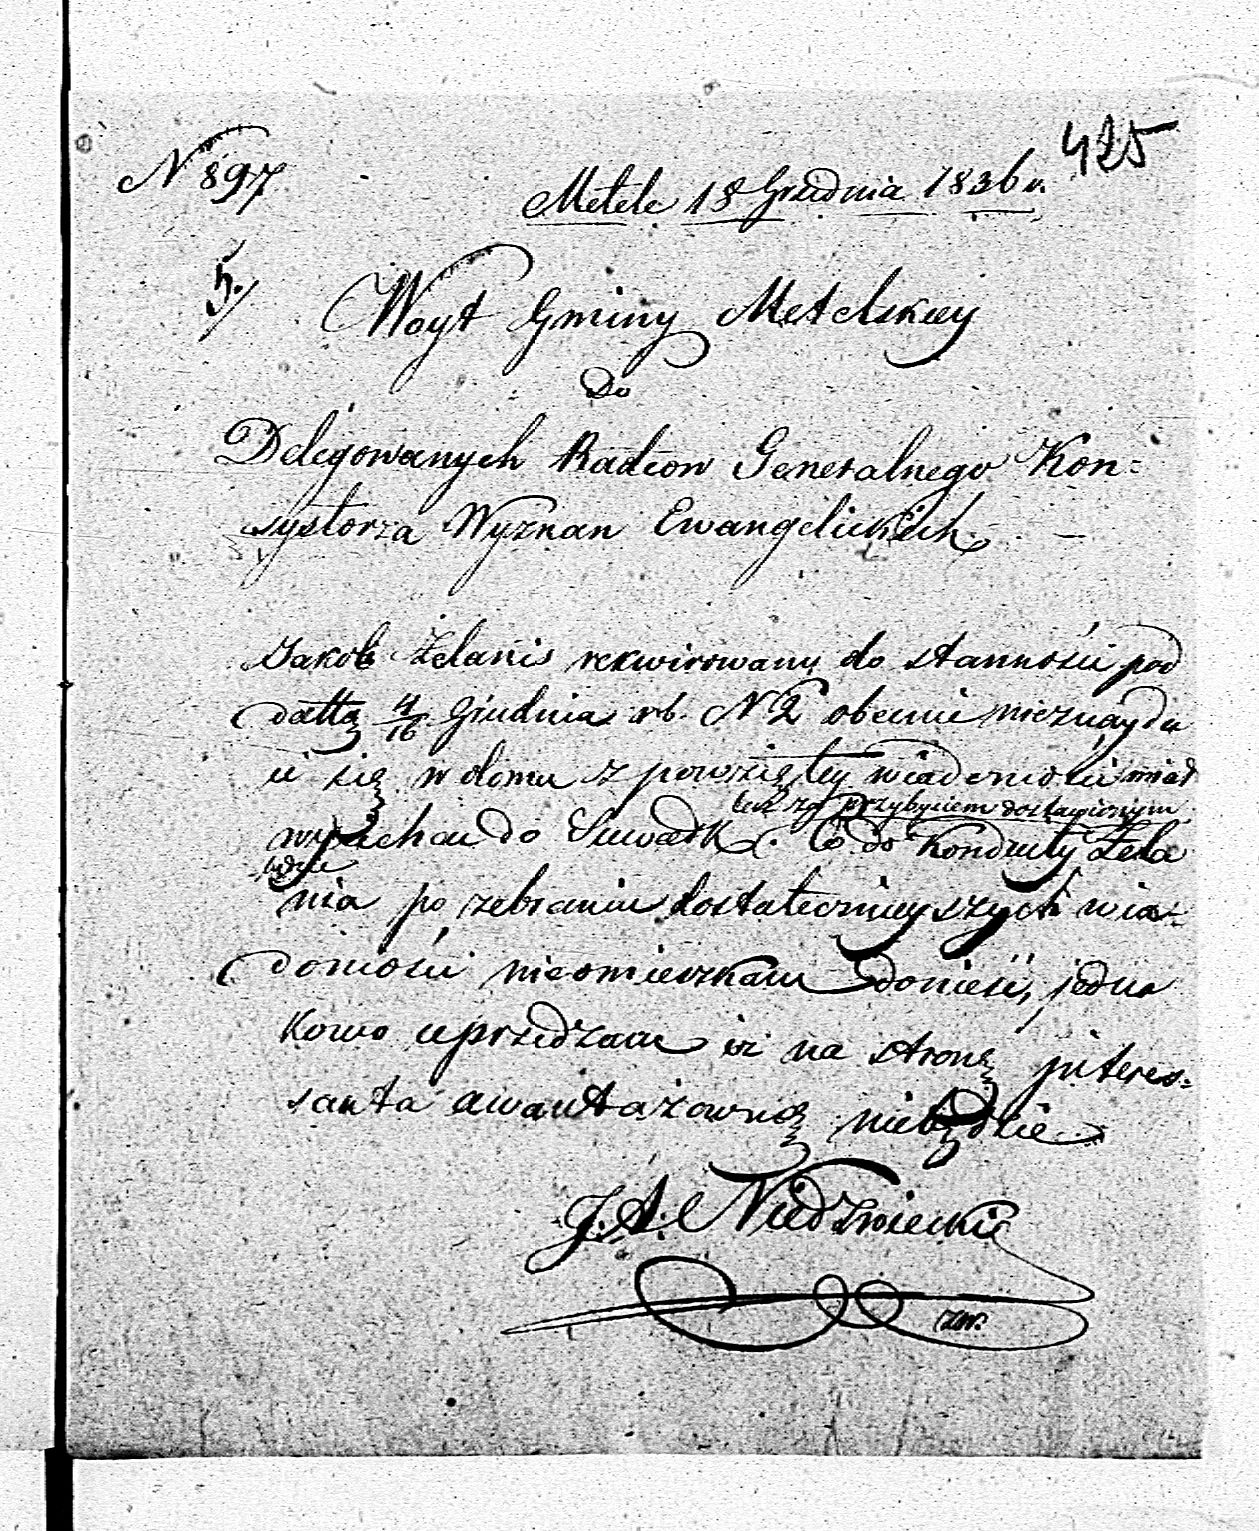 425
N 897
Metele 18 Grudnia 1836 r.
5./
Woyt Gminy Metelskiey
Do
Delegowanych Radcow Generalnego Kon=
systorza Wyznan Ewangelickich. —
Jakob Zelanis rekwirowany do stannosci pod
dattą 4/16 Grudnia rb. N 2 obecnie nieznaydu
ie się w domu z powziętey wiadomości miał
wyiechać do Suwałk. Co do Kondruty Zela
lecz za przybyciem dostawionym
będzie
nia po zebraniu dostatecznieyszych wia=
domości nieomieszkam donieść, jedna
kowo uprzedzam iż na stronę interes=
santa awantażowną niebędzie
J. A. Niedzwiecki
zw.